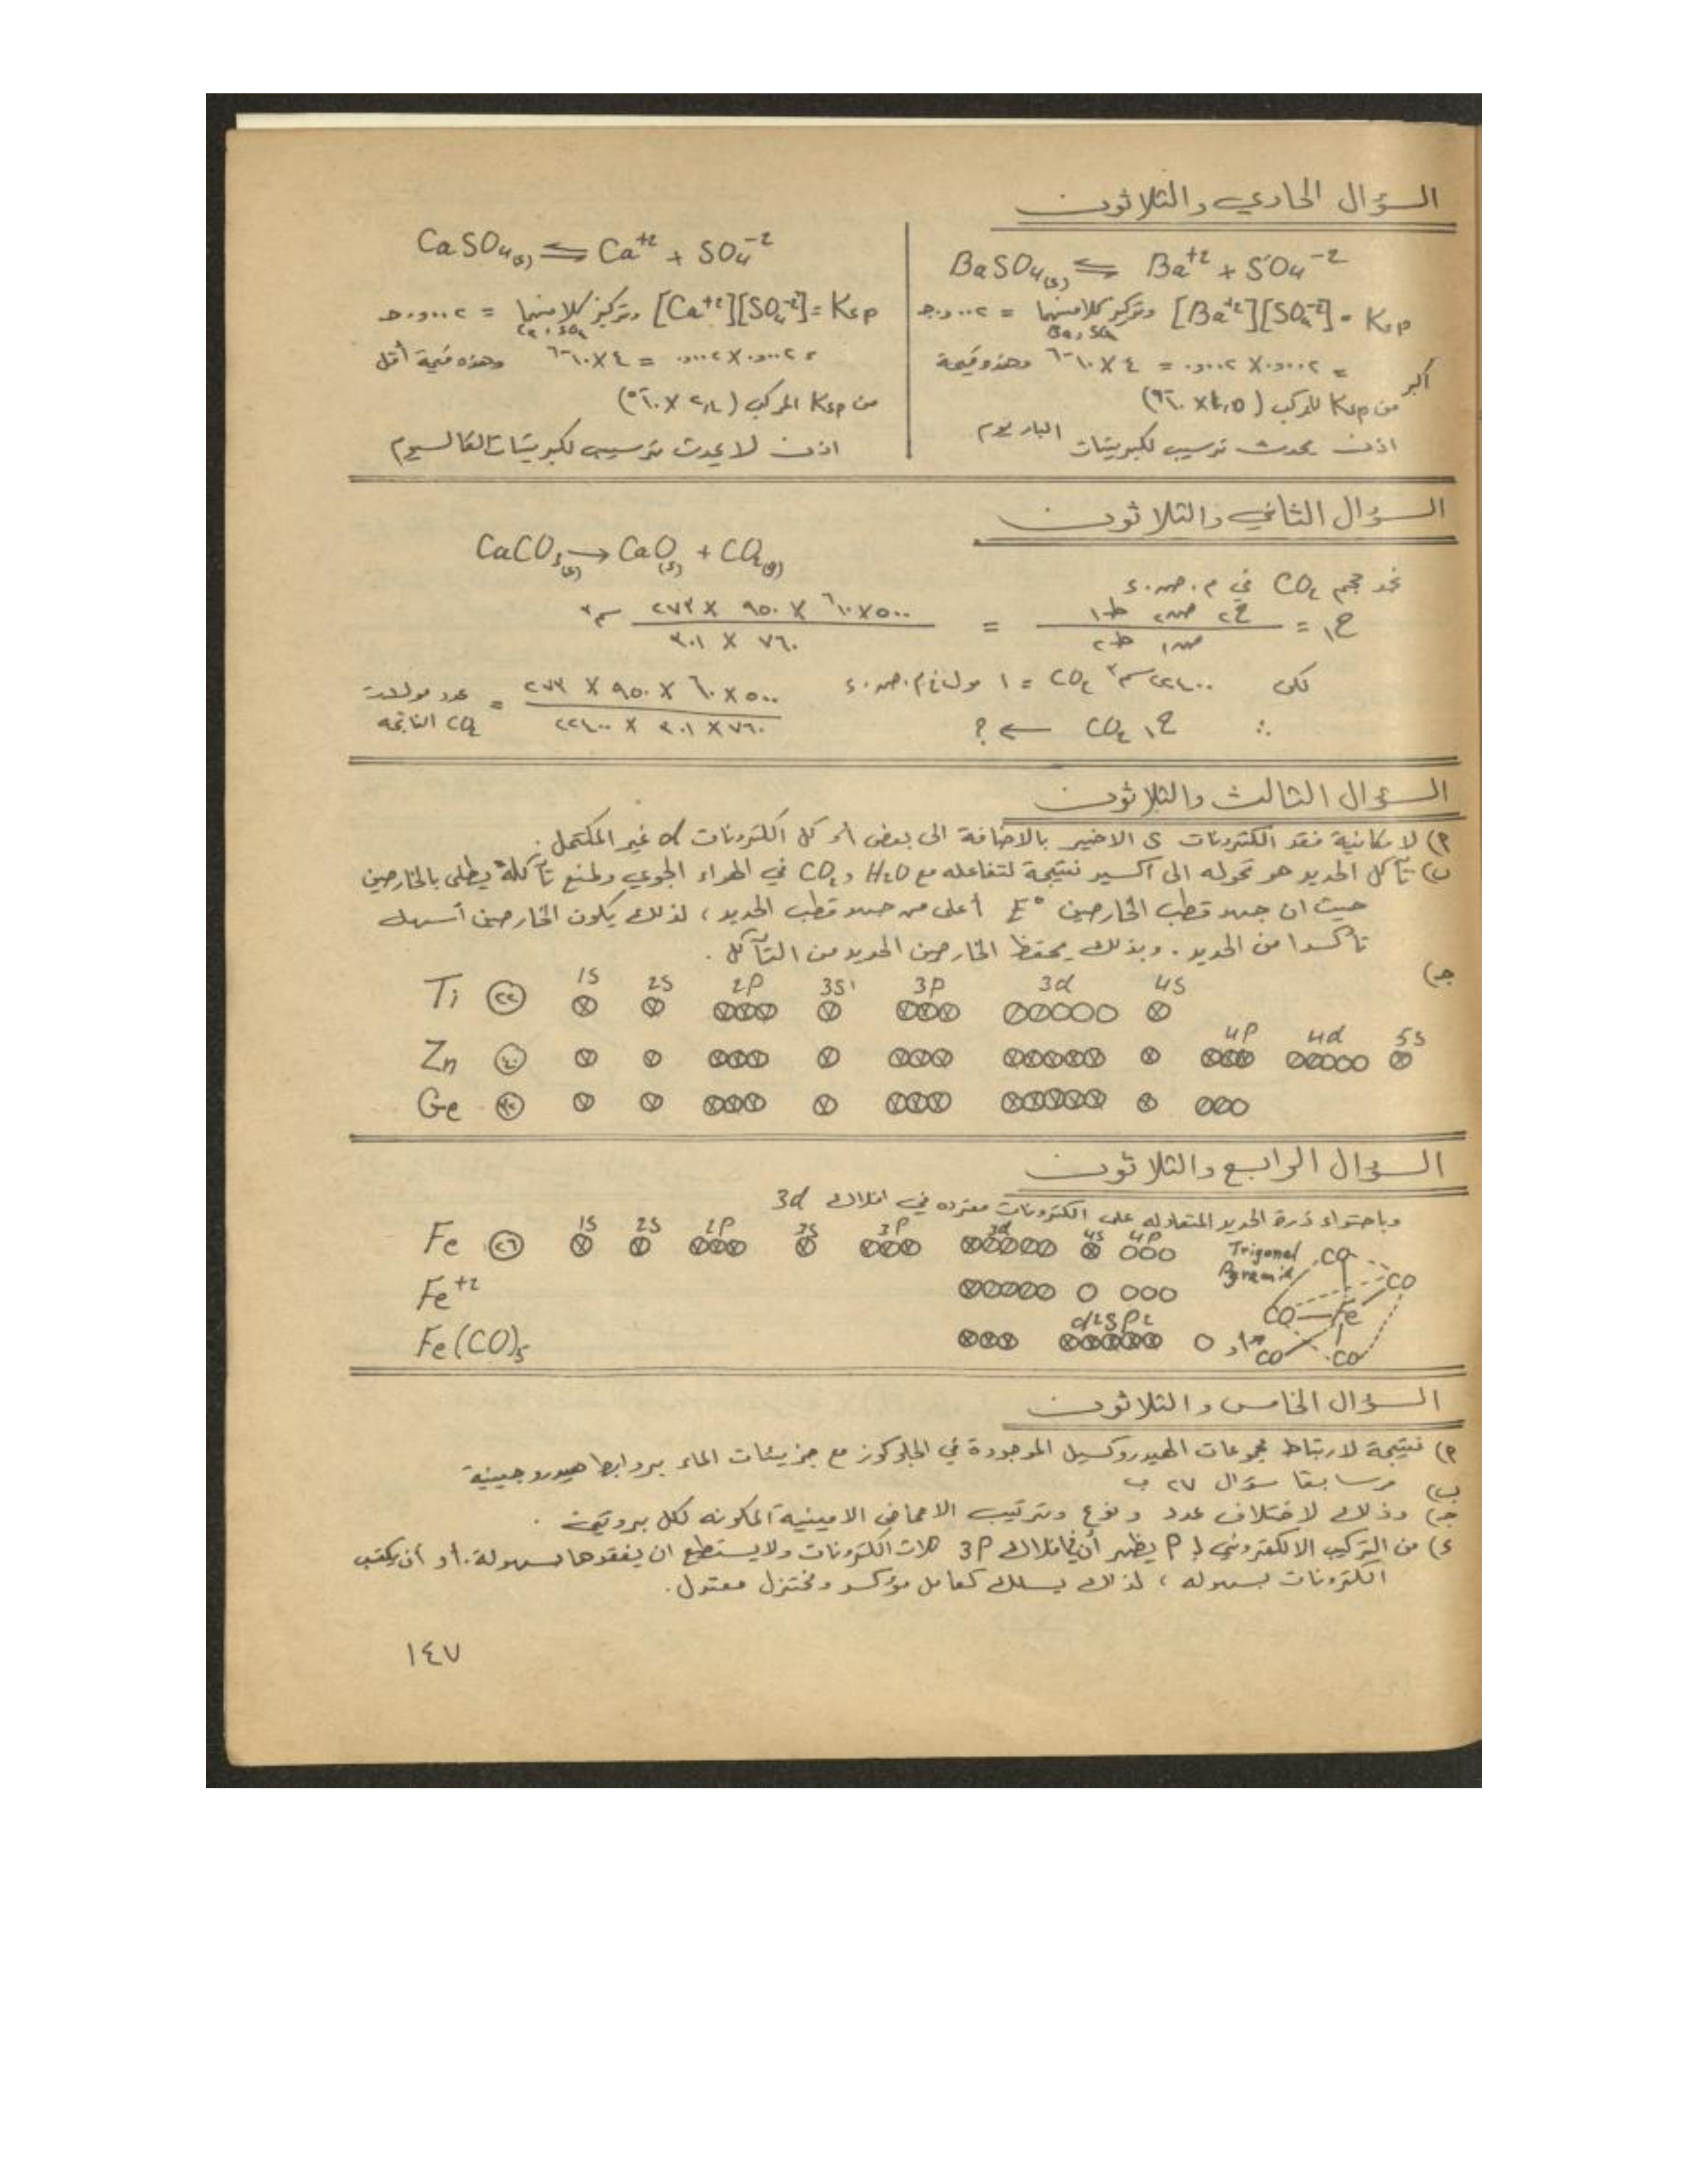 السؤال الحادي والثلاثون
BaSO4(s) ⇌ Ba+2 + SO4-2
Ksp = [Ba+2][SO4-2] وتركيز كلا منهما =
Ba, SO4
= ٠٫٠٠٢ × ٠٫٠٠٢ = ٤ × ١٠-٦ وهذه قيمة
أكبر من Ksp للمركب
اذن يحدث ترسيب لكبريتات الباريوم
CaSO4(s) ⇌ Ca+2 + SO4-2
Ksp = [Ca+2][SO4-2] وتركيز كلا منهما =
Ca, SO4
= ٠٫٠٠٢ × ٠٫٠٠٢ = ٤ × ١٠-٦ وهذه قيمة أقل
من Ksp المركب
اذن لا يحدث ترسيب لكبريتات الكالسيوم
السؤال الثاني والثلاثون
CaCO3(s) → CaO(s) + CO2(g)
نجد حجم CO2 في م.ض.ء
ح١ = ح٢ ض٢ ط١ / ض١ ط٢ = ٥٠٠ × ١٠٦ × ٩٥٠ × ٢٧٣ / ٧٦٠ × ٣٠١ سم٣
لكن ٢٢٤٠٠ سم٣ CO2 = ١ مول في م.ض.ء
∴ ح١ CO2 ← ؟
٥٠٠ × ١٠٦ × ٩٥٠ × ٢٧٣ / ٧٦٠ × ٣٠١ × ٢٢٤٠٠ = عدد مولات CO2 الناتجه
السؤال الثالث والثلاثون
٢) لامكانية فقد الكترونات s الاخير بالاضافة الى بعض أو كل الكترونات d غير المكتمل.
ب) تآكل الحديد هو تحوله الى اكسيد نتيجة لتفاعله مع H2O و CO2 في الهواء الجوي ولمنع تآكله يطلى بالخارصين
حيث ان جهد قطب الخارصين E° أعلى من جهد قطب الحديد، لذلك يكون الخارصين أسهل
تأكسدا من الحديد. وبذلك يحفظ الخارصين الحديد من التآكل.
ج)
1S 2S 2P 3S 3P 3d 4S
Ti ٢٢
4P 4d 5S
Zn ٤٠
Ge
السؤال الرابع والثلاثون
وباحتواء ذرة الحديد المتعادله على الكترونات مفرده في افلاك 3d
1S 2S 2P 3S 3P 3d 4S 4P
Fe ٢٦
Trigonal
CO
CO
Fe+2
CO Fe
Fe(CO)5
CO CO
السؤال الخامس والثلاثون
٢) نتيجة لارتباط مجموعات الهيدروكسيل الموجودة في الجلوكوز مع جزيئات الماء بروابط هيدروجينية
ب) مر سابقا سؤال ٢٧ ب
ج) وذلك لاختلاف عدد ونوع وترتيب الاحماض الامينية المكونه لكل بروتين.
ء) من التركيب الالكتروني لـ P يظهر أن في افلاك 3P ثلاث الكترونات ولايستطيع ان يفقدها بسهولة. أو أن يكتسب
الكترونات بسهوله، لذلك يسلك كعامل مؤكسد ومختزل معتدل.
١٤٧